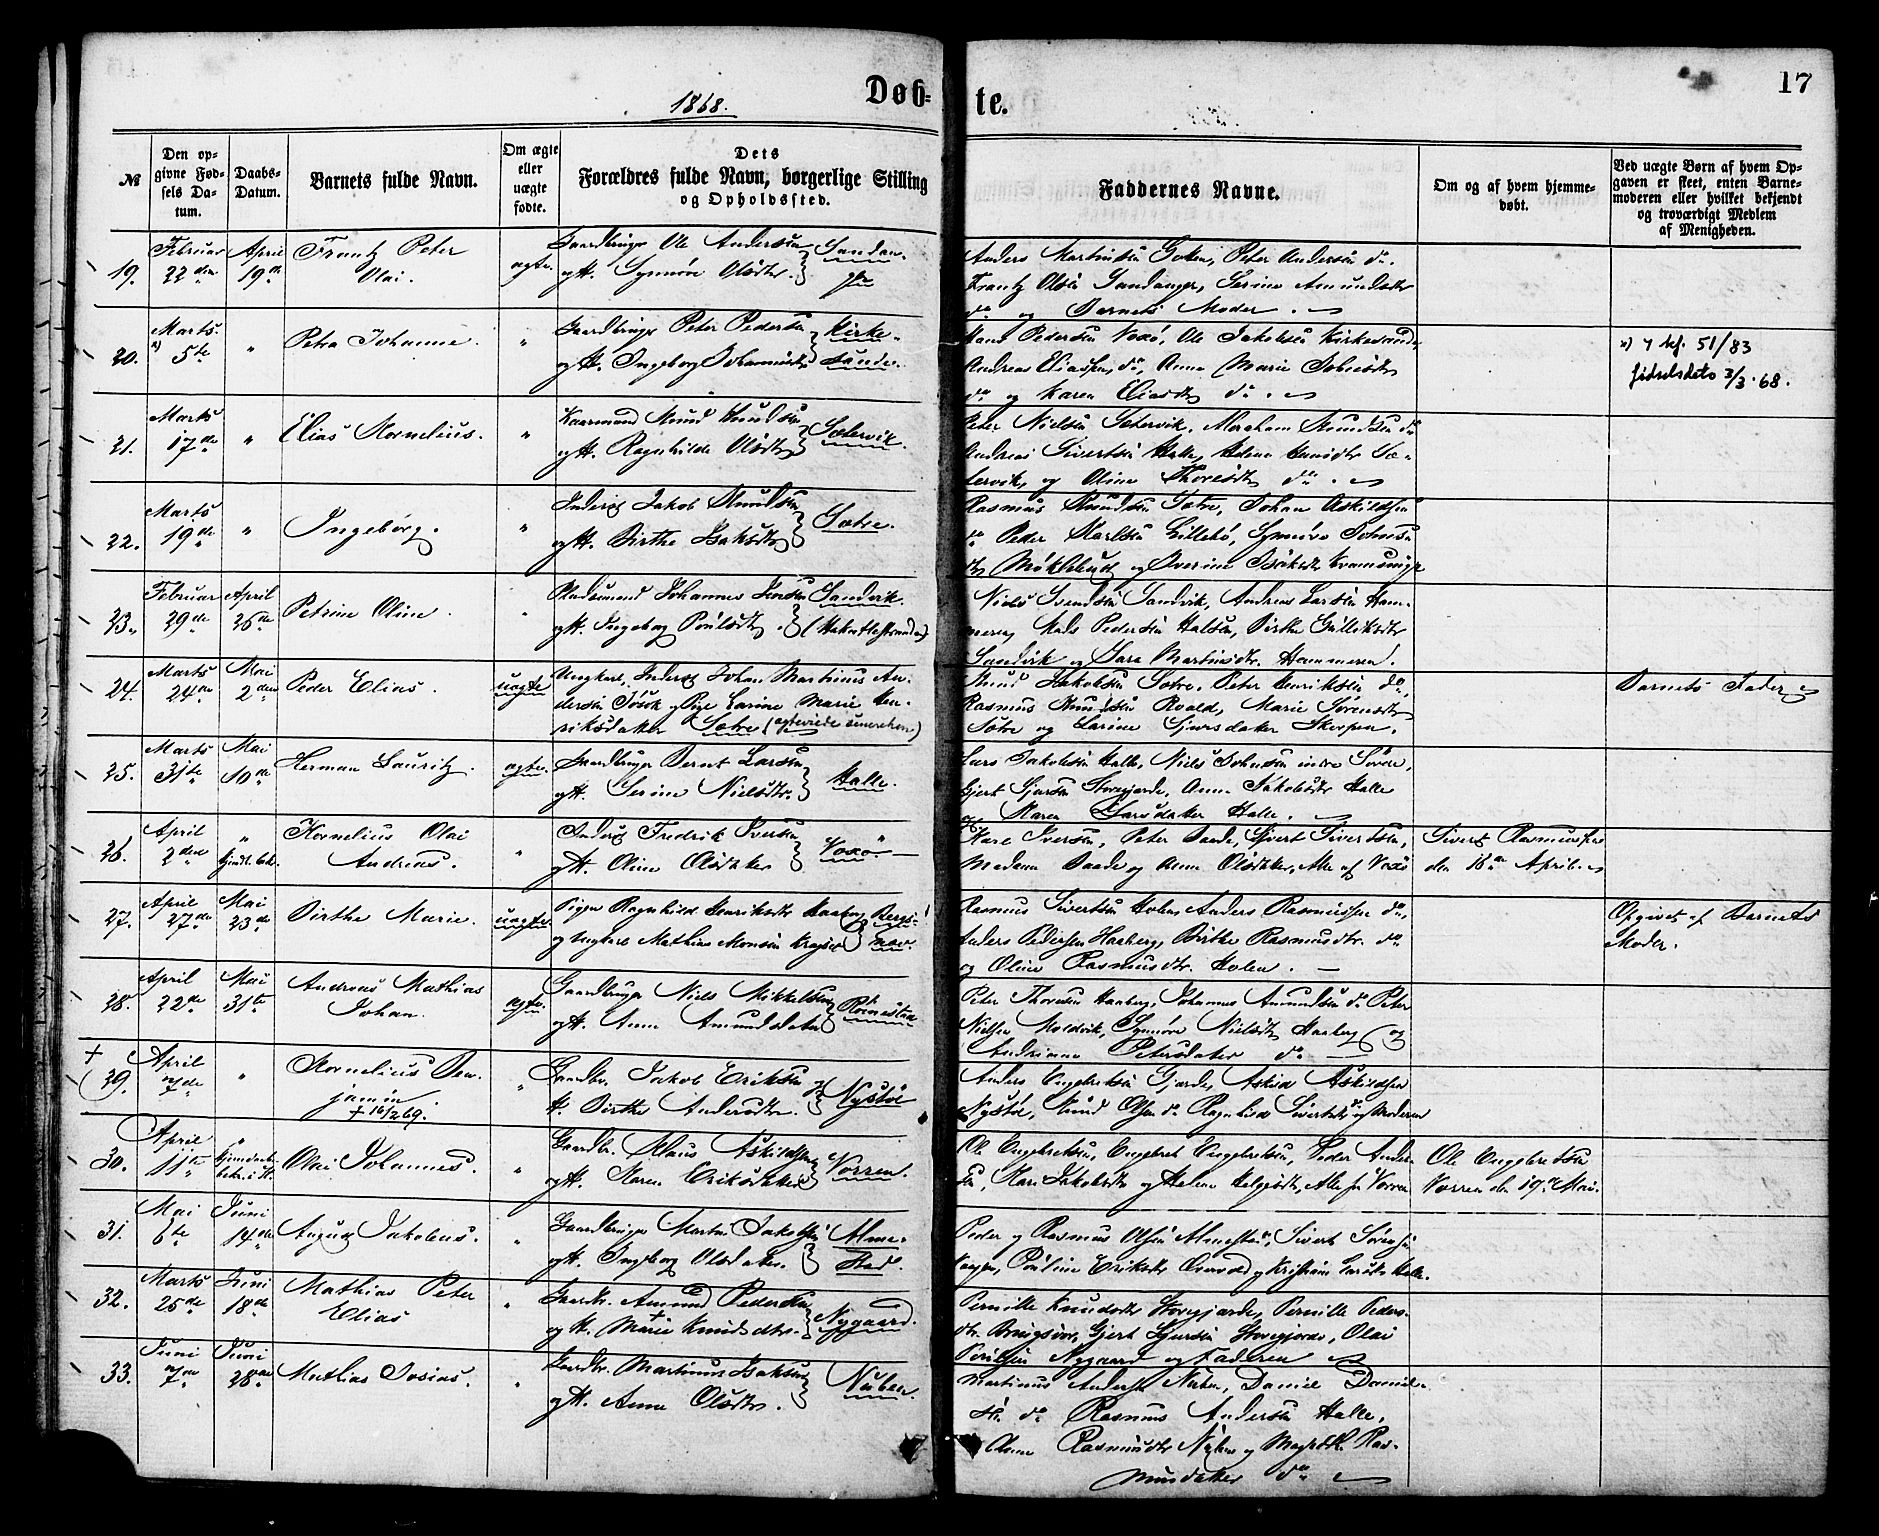 1868.
Døb-
te.
17
№
Den op-
givne Fød-
sels Da-
tum.
Daabs-
Datum.
Barnets fulde Navn.
Om ægte
eller
uægte
fødte.
Dets
Forældres fulde Navn, borgerlige Stilling
og Opholdssted.
Faddernes Navne.
Om og af hvem hjemme-
døbt.
Ved uægte Børn af hvem Op-
gaven er skeet, enten Barne-
moderen eller hvilket bekjendt
og troværdigt Medlem
af Menigheden.
19.
Februar
22 den
April
19 de
Frantz Peter
Olai.
ægte.
Gaardbruger Ole Andersen
og H. Synnøve Olsdtr.
Peter Andersen do.
Frantz Olsen Sandanger, Serine Amundsdtr
do og Barnets Moder.
20.
Marts
5te
"
Petra Johanne.
"
Gaardbruger Peter Pedersen
og H. Ingeborg Johannesdtr
Kirke-
sunde.
Hans Pedersen Voxø, Ole Jakobsen Kirkesund
Andreas Eliassen do, Anne Marie
do og Karen Eliasdtr do.
51/83
fødselsdato 3/3-68.
21.
Marts
17de
"
Elias Kornelius.
"
Knud Knudsen
og H. Ragnhilde Olsdtr
Sætervik.
Peter Nielsen Sætervik, Abraham Knudsen do
Andreas Sivertsen Halle, Helene Knudsdtr Sæ-
tervik, og Oline Thoresdtr do.
22.
Marts
19de
"
Ingeborg.
"
Inderst Jakob Knudsen
og H. Birthe Isaksdtr
Sætre.
Rasmus Knudsen Sætre, Johan Askildsen
do Peder Karlsen Lillebø, Synnøve
23.
Februar
29de
April
26de
Petrine Oline
"
Johannes Jensen
og H. Ingeborg Poulsdtr.
Sandvik.
Niels Svendsen Sandvik, Andreas Larsen Ham-
meren, Mads Pedersen Halsen, Birthe Gulliksdtr
Sandvik og Sara Martinsdtr. Hammeren.
24.
Marts
24de
Mai
2den
Peder Elias.
uægte
Ungkarl, Inderst Johan Martinus An-
dersen og Pige Larine Marie Hen-
riksdatter Sætre
Knud Jakobsen Sætre, Peter Henriksen do,
Rasmus Knudsen Roald, Marie Sørensdtr
Sætre og Larine Sjursdatter Skorpen.
Barnets Fader
25.
Marts
31te
Mai
10de
Herman Lauritz.
ægte.
Gaardbruger Bernt Larsen
og H. Serine Nielsdtr.
Halle.
Lars Jakobsen Halle, Niels Johnsen indre
Gjert Sjursen Storegjerde, Anne Jakobsdtr Halle
og Maren Larsdatter Halle.
26.
April
2den
"
Kornelius Olai
Andreas.
"
Inderst Fredrik Iversen
og H. Oline Olsdatter
Voxø
Karl Iversen, Peter Baade, Sivert Sivertsen,
Madame Baade og Anne Olsdatter, Alle af Voxø
Sivert Rasmussen
den 16de April.
27.
April
27de
Mai
23de
Birthe Marie.
uægte
Pigen Ragnhild Henriksdtr Haaberg
og Ungkarl Mathias Monsen
Rasmus Sivertsen Holen, Anders Rasmussen do,
Anders Pedersen Haaberg, Birthe Rasmusdtr. do
og Oline Rasmusdtr. Holen.
Opgivet af Barnets
Moder.
28.
April
22de
Mai
31te
Andreas Mathias
Johan.
ægte.
Gaardbruger Niels Mikkelsen
og H. Anne Amundsdatter
Peter Thoresen Haaberg, Johannes Amundsen do Peter
Nielsen Moldvik, Synnøve Nielsdtr Haaberg og
Andrianne Petersdatter do
+
29.
April
7de
"
Kornelius Ben-
jamin
+ 16/2 69.
"
Gaardbr. Jakob Eriksen og
H. Birthe Andersdtr.
Nystøl
Anders Engebretsen Gjerde, Askild Askildsen
Nystøl, Knud Olsen do Ragnhild Sivertsdtr do og Moderen
30.
April
11te
Olai Johannes.
"
Gaardbr. Klaus Askildsen
og H. Maren Eriksdatter
Vorren.
Ole Engebretsen, Engebret Engebretsen, Peder Ander-
sen, Kari Jakobsdtr og Helene Helgesdtr, Alle fra Vorren
Ole Engebretsen
Vorren den 19de Mai.
31.
Mai
6te
Juni
14de
August Jakobus.
"
Gaardbruger Martin Jakobsen
og H. Ingeborg Olsdatter.
Alme-
stad.
Peder og Rasmus Olsen Almestad, Sivert Sørensen
32.
Marts
25de
Juni
18de
Mathias Peter
Elias
"
Gaardbr. Amund Pedersen
og H. Marie Knudsdtr.
Nygaard.
Pernille Knudsdtr Storegjerde, Pernille Peders-
dtr. Gjert Sjursen Storegjerde, Olai
Nygaard og Faderen
33.
Juni
7de
Juni
28de
Mathias Josias.
"
Gaardbr. Martinus Isaksen
og H. Anne Olsdtr.
Martinus Andersen Daniel Daniel-
sen do Rasmus Andersen Halle,
Anne Rasmusdtr og Ras-
musdatter do